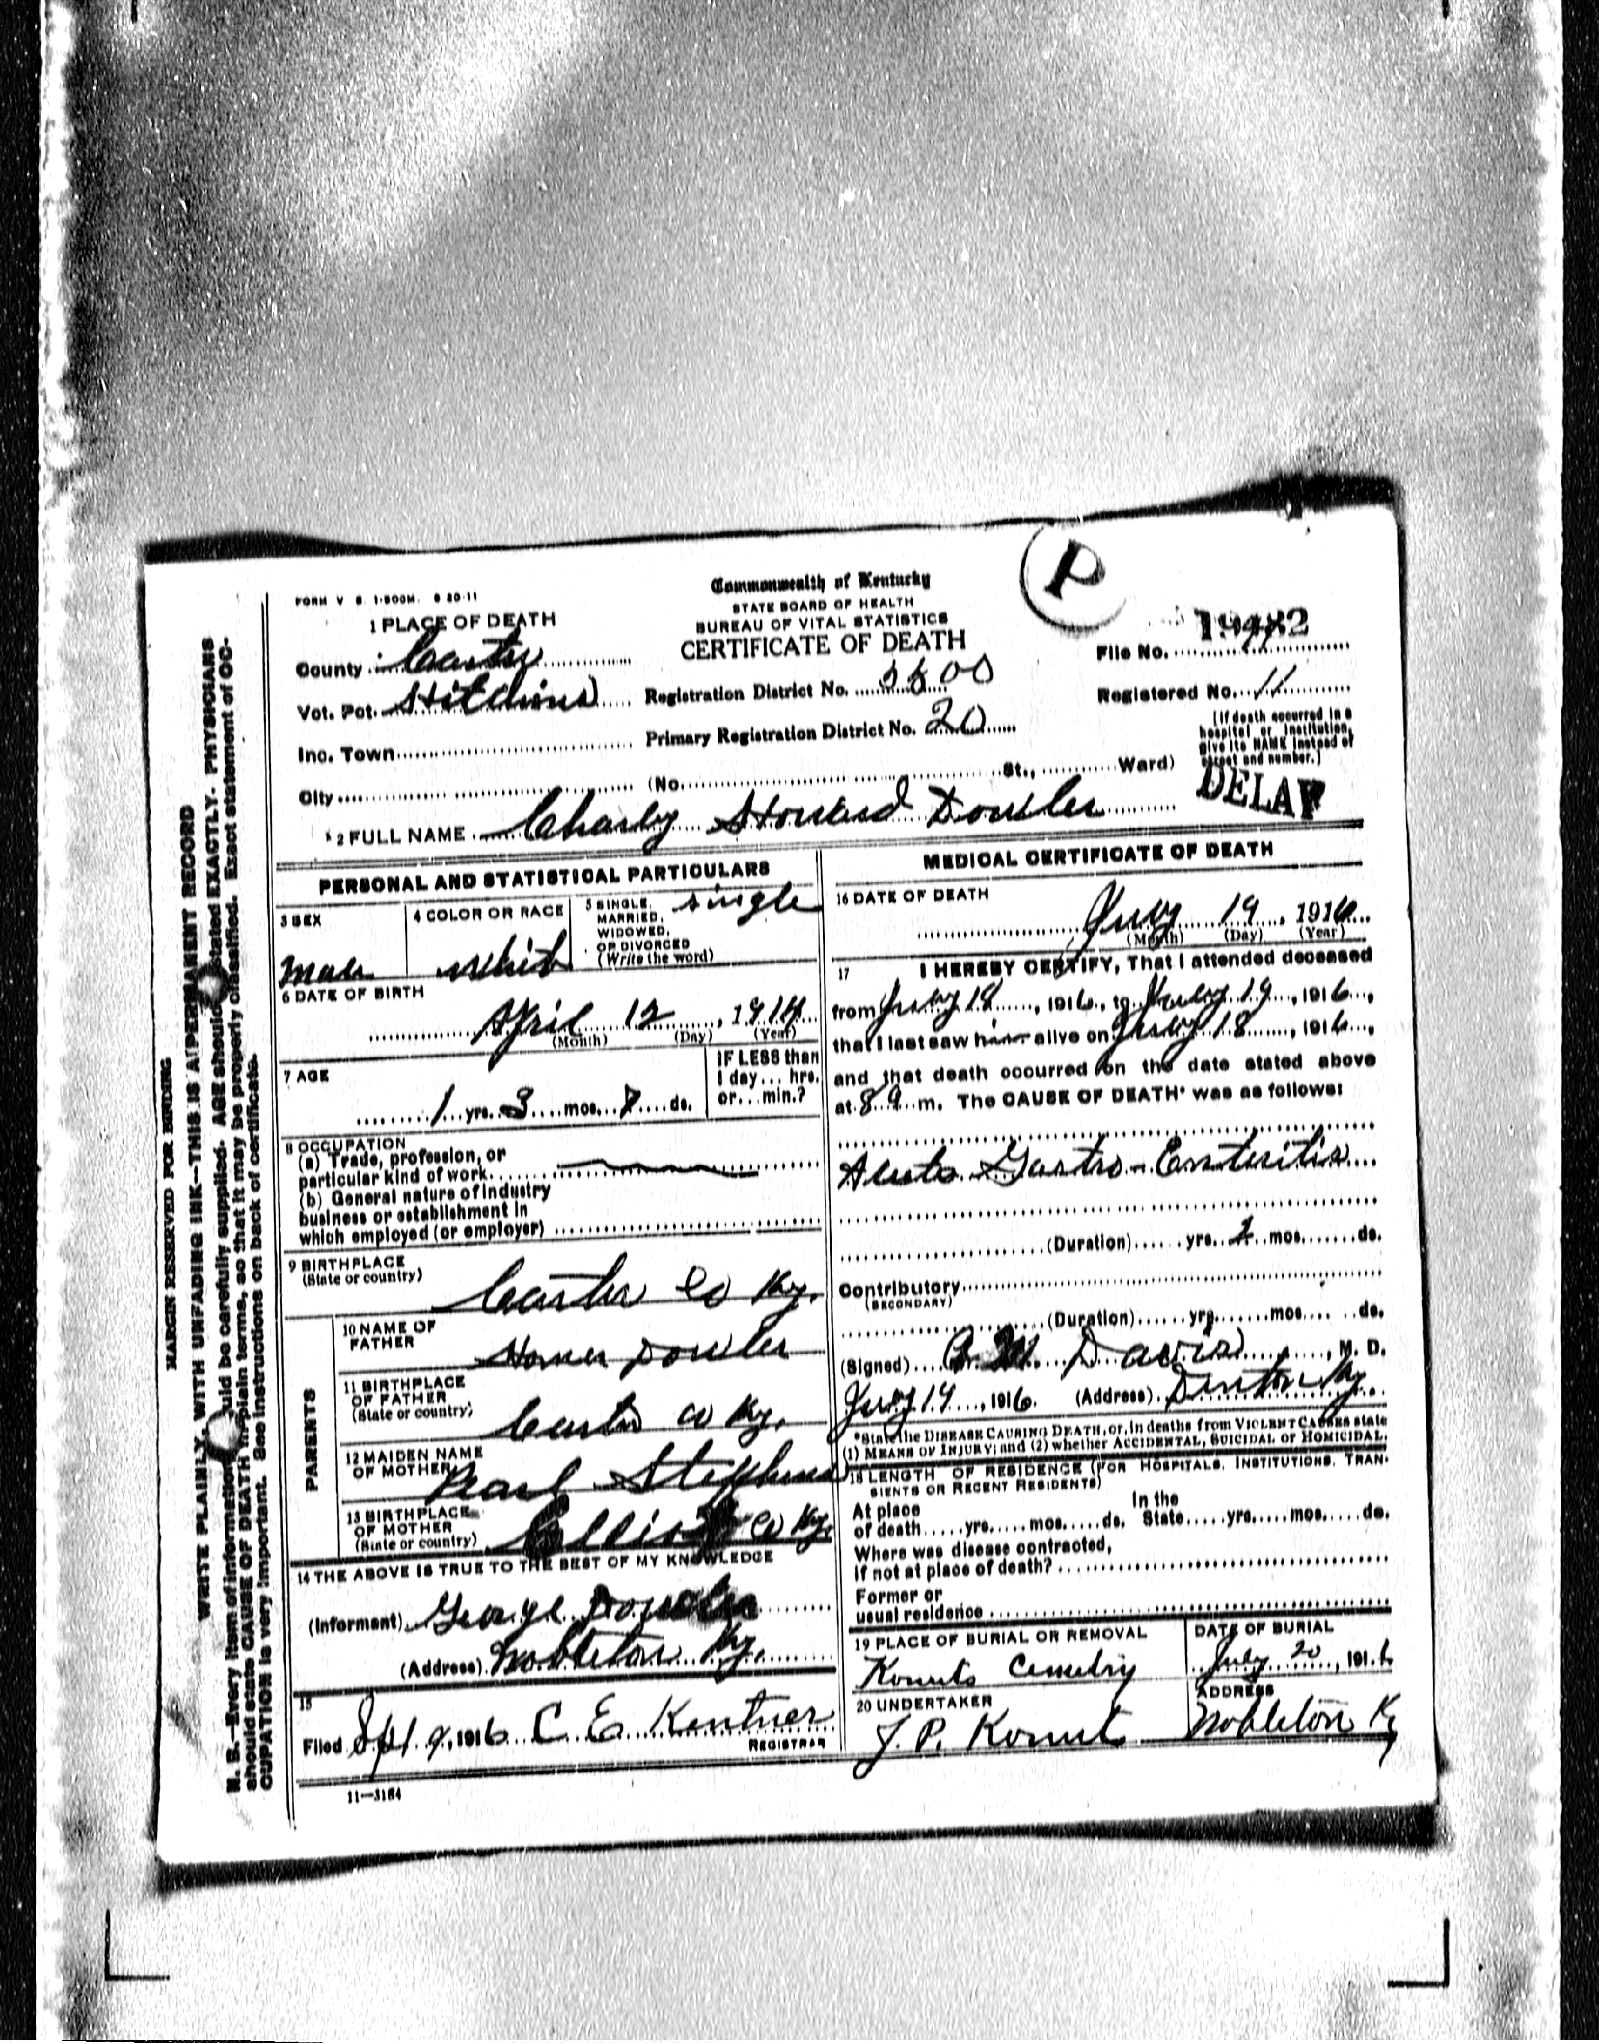 FORM V S. 1-500M. 8 20-11
Commonwealth of Kentucky
STATE BOARD OF HEALTH
BUREAU OF VITAL STATISTICS
CERTIFICATE OF DEATH
P
1 PLACE OF DEATH
County Carter
Vot. Pct. Hitchins
Inc. Town
City
Registration District No.
Primary Registration District No. 20
(No. St., Ward)
File No.
Registered No. 11
(If death occurred in a
hospital or institution,
give its NAME instead of
street and number.)
DELAY
2 FULL NAME Charley Howard Dowler
PERSONAL AND STATISTICAL PARTICULARS
3 SEX
Male
4 COLOR OR RACE
White
5 SINGLE,
MARRIED,
WIDOWED,
OR DIVORCED
(Write the word)
single
6 DATE OF BIRTH
April 12, 191
(Month) (Day) (Year)
7 AGE
1 yrs. 3 mos. 7 ds.
IF LESS than
1 day... hrs.
or... min.?
8 OCCUPATION
(a) Trade, profession, or
particular kind of work
(b) General nature of industry
business or establishment in
which employed (or employer)
9 BIRTHPLACE
(State or country)
Carter Co Ky.
PARENTS
10 NAME OF
FATHER
Homer Dowler
11 BIRTHPLACE
OF FATHER
(State or country)
Carter Co Ky.
12 MAIDEN NAME
OF MOTHER
Pearl Stephens
13 BIRTHPLACE
OF MOTHER
(State or country)
Elliott Co Ky.
14 THE ABOVE IS TRUE TO THE BEST OF MY KNOWLEDGE
(Informant) George Dowler
(Address) Nobleton Ky.
15
Filed Sept 9, 1916 C E Kentner
REGISTRAR
11—3184
MEDICAL CERTIFICATE OF DEATH
16 DATE OF DEATH
July 19, 1916
(Month) (Day) (Year)
17 I HEREBY CERTIFY, That I attended deceased
from July 18, 1916, to July 19, 1916,
that I last saw him alive on July 18, 1916,
and that death occurred on the date stated above
at 8 a m. The CAUSE OF DEATH* was as follows:
Acute Gastro-Enteritis
(Duration) yrs. mos. ds.
Contributory
(SECONDARY)
(Duration) yrs. mos. ds.
(Signed) Davis, M. D.
July 19, 1916. (Address) Denton Ky.
*State the DISEASE CAUSING DEATH, or, in deaths from VIOLENT CAUSES state
(1) MEANS OF INJURY; and (2) whether ACCIDENTAL, SUICIDAL or HOMICIDAL.
18 LENGTH OF RESIDENCE (FOR HOSPITALS, INSTITUTIONS, TRAN-
SIENTS OR RECENT RESIDENTS)
At place
of death yrs. mos. ds.
In the
State yrs. mos. ds.
Where was disease contracted,
if not at place of death?
Former or
usual residence
19 PLACE OF BURIAL OR REMOVAL
Cemetry
DATE OF BURIAL
July 20, 1916
20 UNDERTAKER
J. P.
ADDRESS
Nobleton Ky
MARGIN RESERVED FOR BINDING
WRITE PLAINLY, WITH UNFADING INK—THIS IS A PERMANENT RECORD
N. B.—Every item of information should be carefully supplied. AGE should be stated EXACTLY. PHYSICIANS
should state CAUSE OF DEATH in plain terms, so that it may be properly classified. Exact statement of OC-
CUPATION is very important. See instructions on back of certificate.